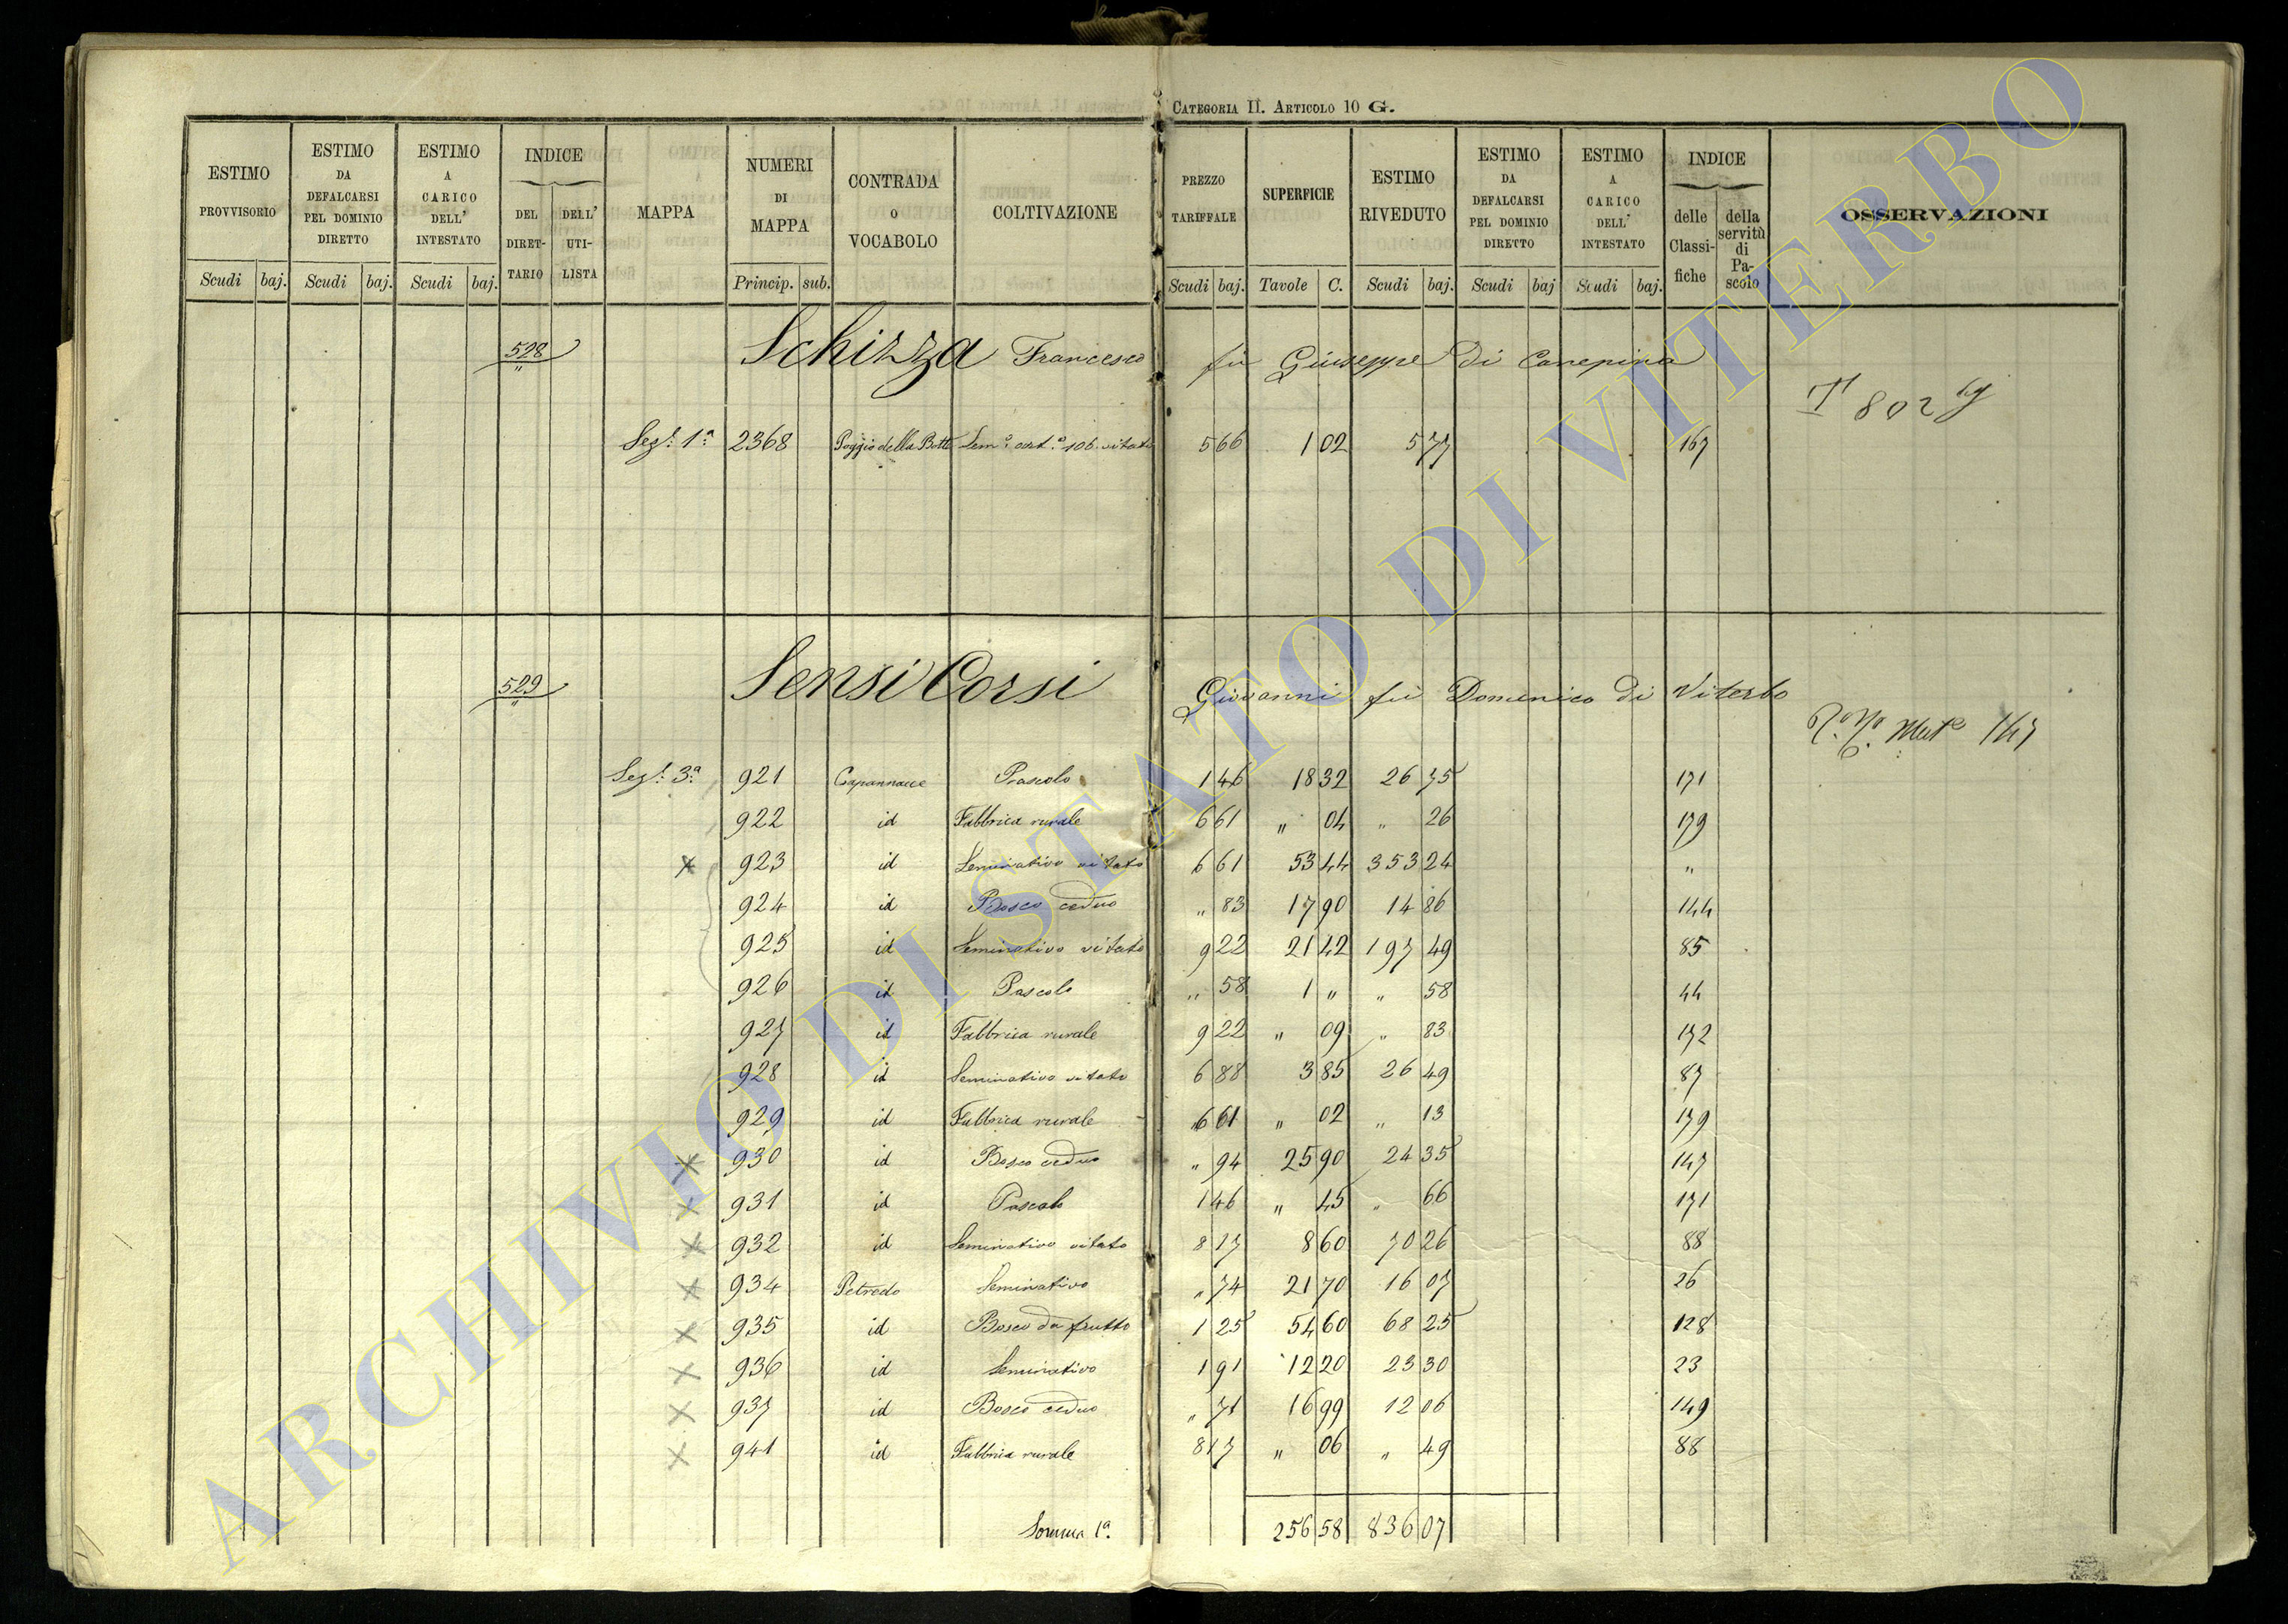 CATEGORIA II. ARTICOLO 10 G.
ESTIMO PROVVISORIO | ESTIMO DA DEFALCARSI PEL DOMINIO DIRETTO | ESTIMO A CARICO DELL' INTESTATO | INDICE | MAPPA | NUMERI DI MAPPA | CONTRADA O VOCABOLO | COLTIVAZIONE | PREZZO TARIFFALE | SUPERFICIE | ESTIMO RIVEDUTO | ESTIMO DA DEFALCARSI PEL DOMINIO DIRETTO | ESTIMO A CARICO DELL' INTESTATO | INDICE | OSSERVAZIONI
DEL DIRETTARIO | DELL' UTILISTA | delle Classifiche | della servitù di Pascolo
Scudi | baj. | Scudi | baj. | Scudi | baj. | Princip. | sub. | Scudi | baj. | Tavole | C. | Scudi | baj. | Scudi | baj | Scudi | baj.
528 Schizza Francesco fu Giuseppe di Canepina
T 802
Sez: 1ª 2368 Poggio della Botte Sem.º vitato 5 66 1 02 5 77 167
529 Sensi Corsi Giovanni fu Domenico di Viterbo
147
Sez: 3ª 921 Capannacce Pascolo 1 46 18 32 26 75 171
922 id Fabbrica rurale 6 61 " 04 " 26 179
x 923 id Seminativo vitato 6 61 53 44 353 24 "
924 id Bosco ceduo " 83 17 90 14 86 144
925 id Seminativo vitato 9 22 21 42 197 49 85
926 id Pascolo " 58 1 " " 58 44
927 id Fabbrica rurale 9 22 " 09 " 83 172
928 id Seminativo vitato 6 88 3 85 26 49 87
929 id Fabbrica rurale 6 61 " 02 " 13 179
x 930 id Bosco ceduo " 94 25 90 24 35 147
x 931 id Pascolo 1 46 " 45 " 66 171
x 932 id Seminativo vitato 8 17 8 60 70 26 88
x 934 Petredo Seminativo " 74 21 70 16 07 26
x 935 id Bosco da frutto 1 25 54 60 68 25 128
x 936 id Seminativo 1 91 12 20 23 30 23
x 937 id Bosco ceduo " 71 16 99 12 06 149
x 941 id Fabbrica rurale 8 17 " 06 " 49 88
Somma 1ª 256 58 836 07
ARCHIVIO DI STATO DI VITERBO